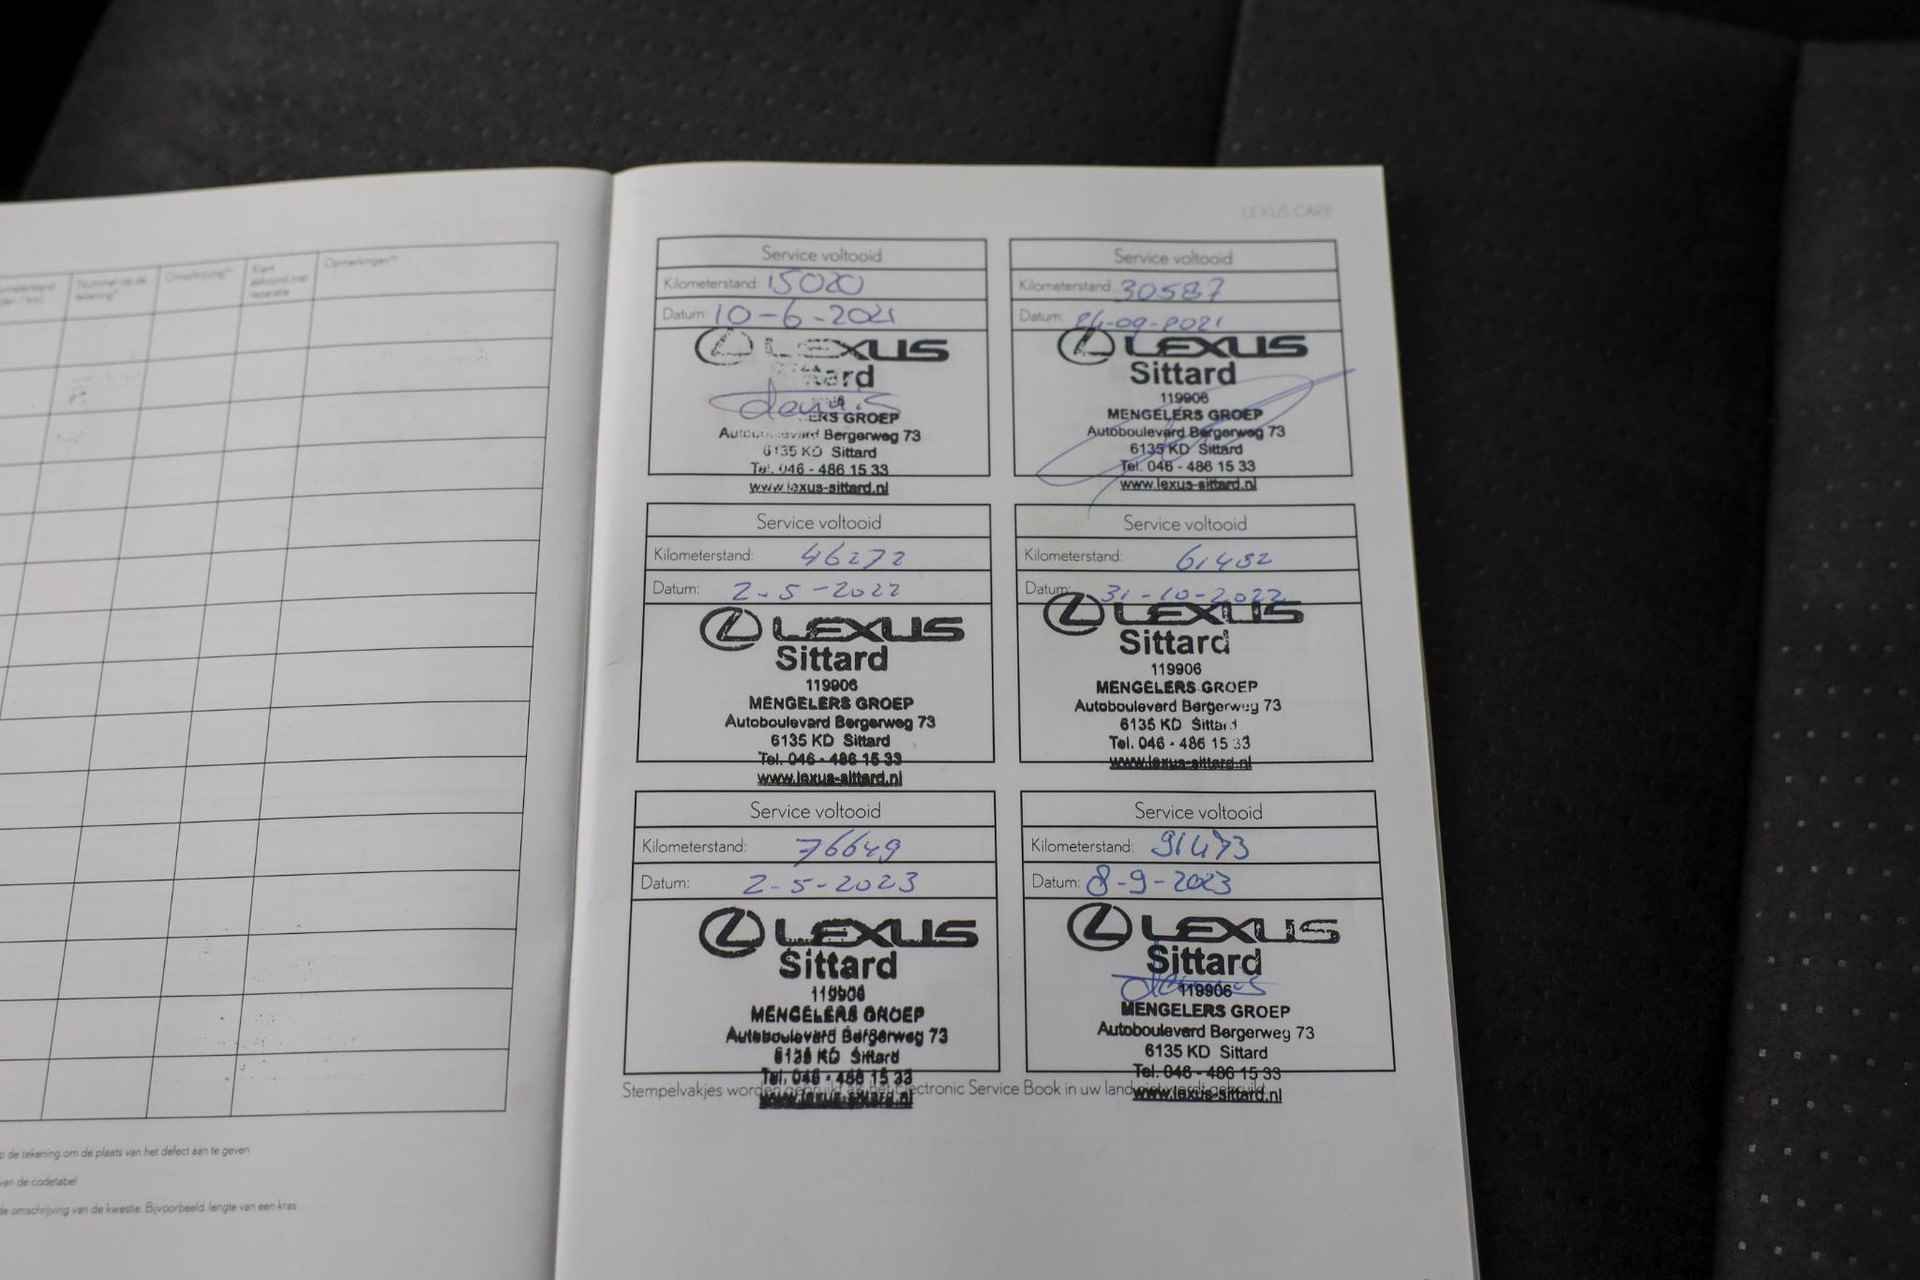 LEXUS CARE
Omschrijving**
Opmerkingen**
Service voltooid
Kilometerstand: 15020
Datum: 10-6-2021
LEXUS
ERS GROEP
Bergerweg 73
6135 KD Sittard
Tel. 046 - 486 15 33
www.lexus-sittard.nl
Service voltooid
Kilometerstand: 30587
Datum: 24-09-2021
LEXUS
Sittard
119906
MENGELERS GROEP
Autoboulevard Bergerweg 73
6135 KD Sittard
Tel. 046 - 486 15 33
www.lexus-sittard.nl
Service voltooid
Kilometerstand: 46272
Datum: 2-5-2022
LEXUS
Sittard
119906
MENGELERS GROEP
Autoboulevard Bergerweg 73
6135 KD Sittard
Tel. 046 - 486 15 33
www.lexus-sittard.nl
Service voltooid
Kilometerstand: 61482
Datum: 31-10-2022
LEXUS
Sittard
119906
MENGELERS GROEP
Autoboulevard Bergerweg 73
6135 KD Sittard
Tel. 046 - 486 15 33
www.lexus-sittard.nl
Service voltooid
Kilometerstand: 76649
Datum: 2-5-2023
LEXUS
Sittard
119906
MENGELERS GROEP
Autoboulevard Bergerweg 73
6135 KD Sittard
Tel. 046 - 486 15 33
www.lexus-sittard.nl
Service voltooid
Kilometerstand: 91473
Datum: 8-9-2023
LEXUS
Sittard
119906
MENGELERS GROEP
Autoboulevard Bergerweg 73
6135 KD Sittard
Tel. 046 - 486 15 33
www.lexus-sittard.nl
Stempelvakjes worden gebruikt als het Electronic Service Book in uw land niet wordt gebruikt
p de tekening om de plaats van het defect aan te geven
van de codetabel
de omschrijving van de kwestie. Bijvoorbeeld: lengte van een kras